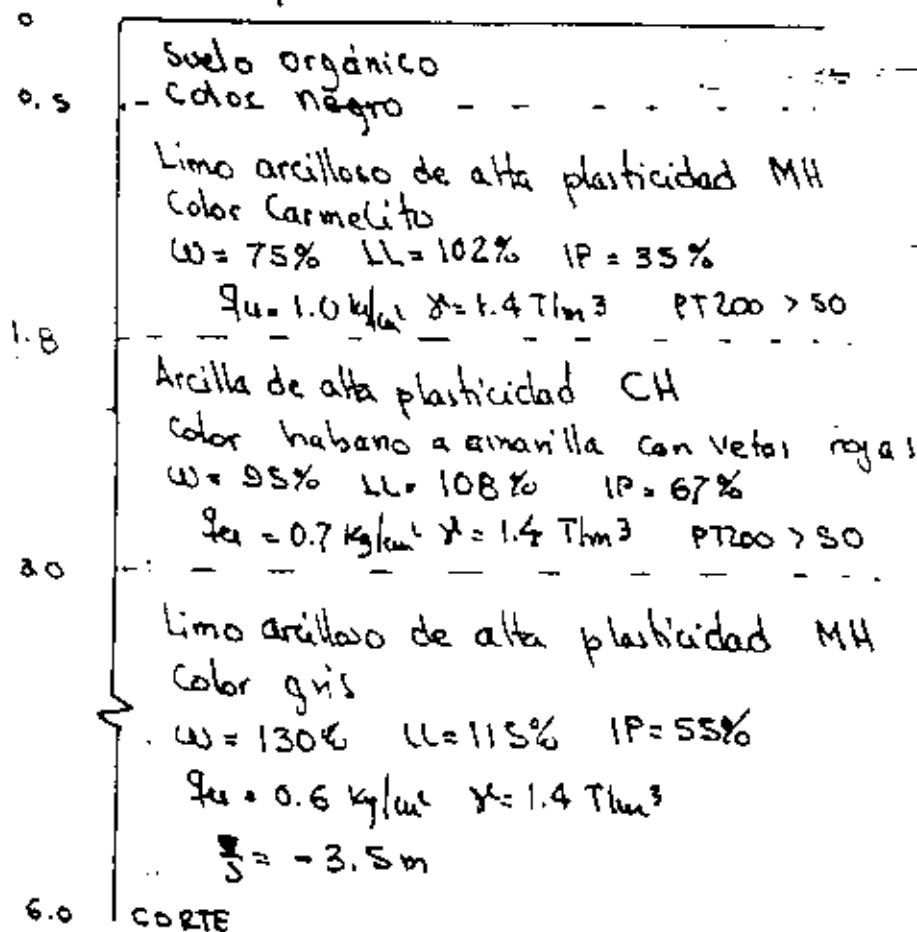 0
Suelo orgánico
0.5 Color negro
Limo arcilloso de alta plasticidad MH
Color Carmelito
ω = 75% LL = 102% IP = 35%
qu = 1.0 kg/cm² γ = 1.4 T/m³ PT200 > 50
1.8
Arcilla de alta plasticidad CH
Color habano a amarilla con vetas rojas
ω = 95% LL = 108% IP = 67%
qu = 0.7 kg/cm² γ = 1.4 T/m³ PT200 > 50
3.0
Limo arcilloso de alta plasticidad MH
Color gris
ω = 130% LL = 115% IP = 55%
qu = 0.6 kg/cm² γ = 1.4 T/m³
= -3.5 m
6.0 CORTE